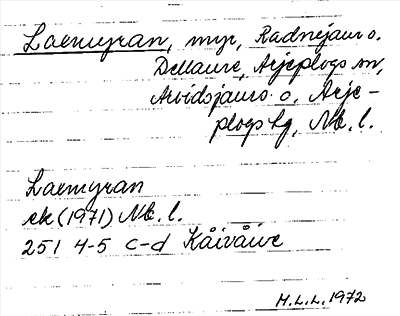 Laemyran, myr, Radnejaur o.
Dellaure, Arjeplogs sn,
Arvidsjaurs o. Arje-
plogs tg, Nb. l.
Laemyran
ek (1971) Nb. l.
251 4-5 c-d Kåivåive
H.L.L. 1972